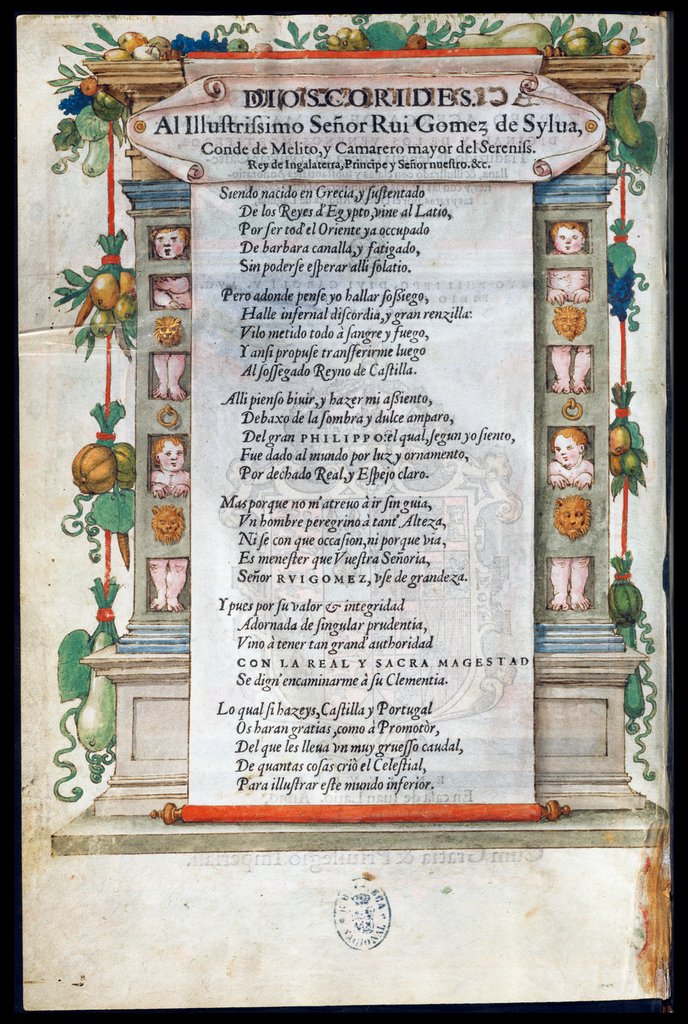 DIOSCORIDES.
Al Illustrissimo Señor Rui Gomez de Sylua,
Conde de Melito, y Camarero mayor del Sereniss.
Rey de Ingalaterra, Principe y Señor nuestro. &c.
Siendo nacido en Grecia, y sustentado
De los Reyes d'Egypto, vine al Latio,
Por ser tod'el Oriente ya occupado
De barbara canalla, y fatigado,
Sin poderse esperar alli solatio.
Pero adonde pense yo hallar sossiego,
Halle infernal discordia, y gran renzilla:
Vilo metido todo à sangre y fuego,
Y ansi propuse transferirme luego
Al sossegado Reyno de Castilla.
Alli pienso biuir, y hazer mi assiento,
Debaxo de la sombra y dulce amparo,
Del gran PHILIPPO: el qual, segun yo siento,
Fue dado al mundo por luz y ornamento,
Por dechado Real, y Espejo claro.
Mas porque no m'atreuo à ir sin guia,
Vn hombre peregrino à tant'Alteza,
Ni se con que occasion, ni porque via,
Es menester que Vuestra Señoria,
Señor RVIGOMEZ, vse de grandeza.
Y pues por su valor & integridad
Adornada de singular prudentia,
Vino à tener tan grand'authoridad
CON LA REAL Y SACRA MAGESTAD
Se dign'encaminarme à su Clementia.
Lo qual si hazeys, Castilla y Portugal
Os haran gratias, como à Promotòr,
Del que les lleua vn muy gruesso caudal,
De quantas cosas criò el Celestial,
Para illustrar este mundo inferior.